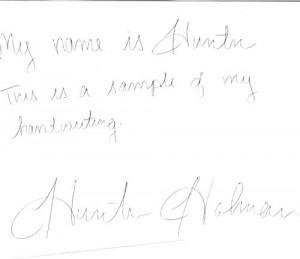 My name is Hunter
This is a sample of my
handwriting.
Hunter Holman